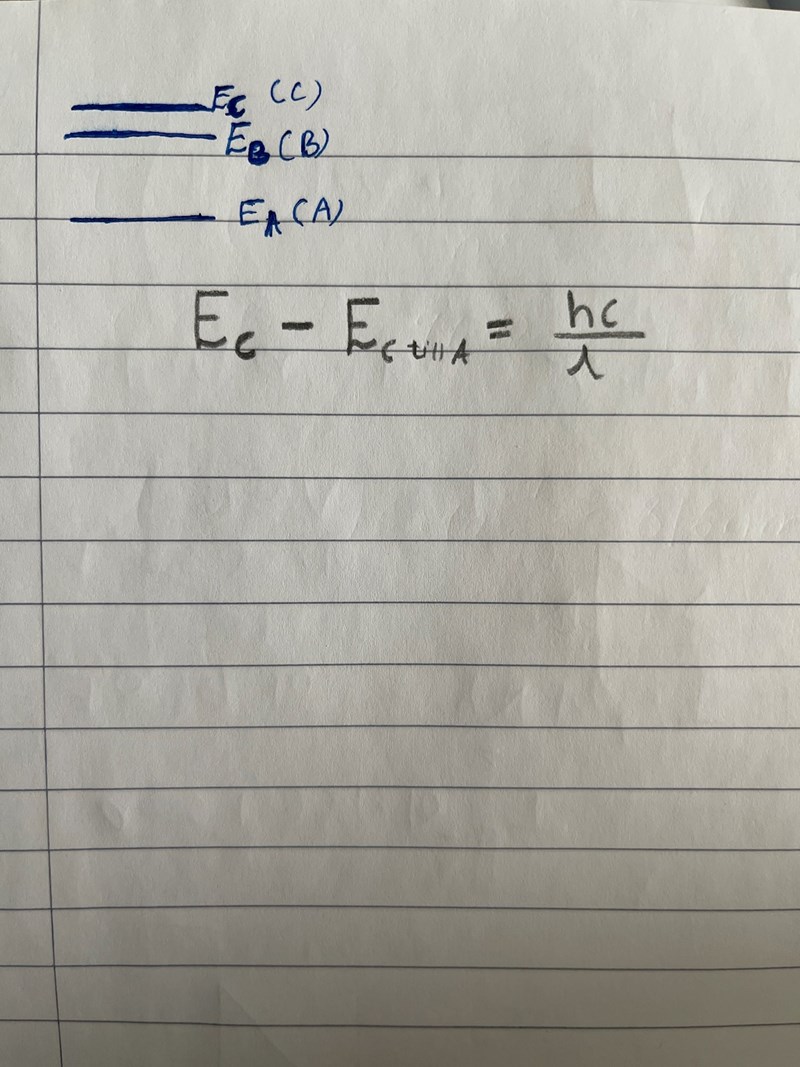 E_C (C)
E_B (B)
E_A (A)
E_C - E_C till A = hc/λ